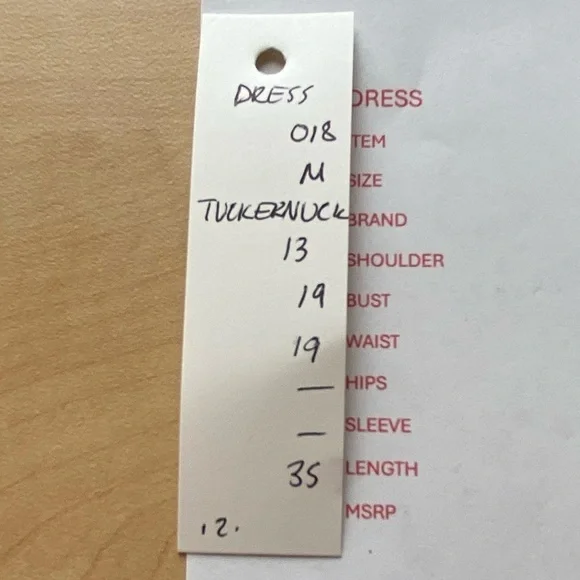 DRESS DRESS
018 TEM
M SIZE
TUCKERNUCK BRAND
13 SHOULDER
19 BUST
19 WAIST
— HIPS
— SLEEVE
35 LENGTH
.2. MSRP